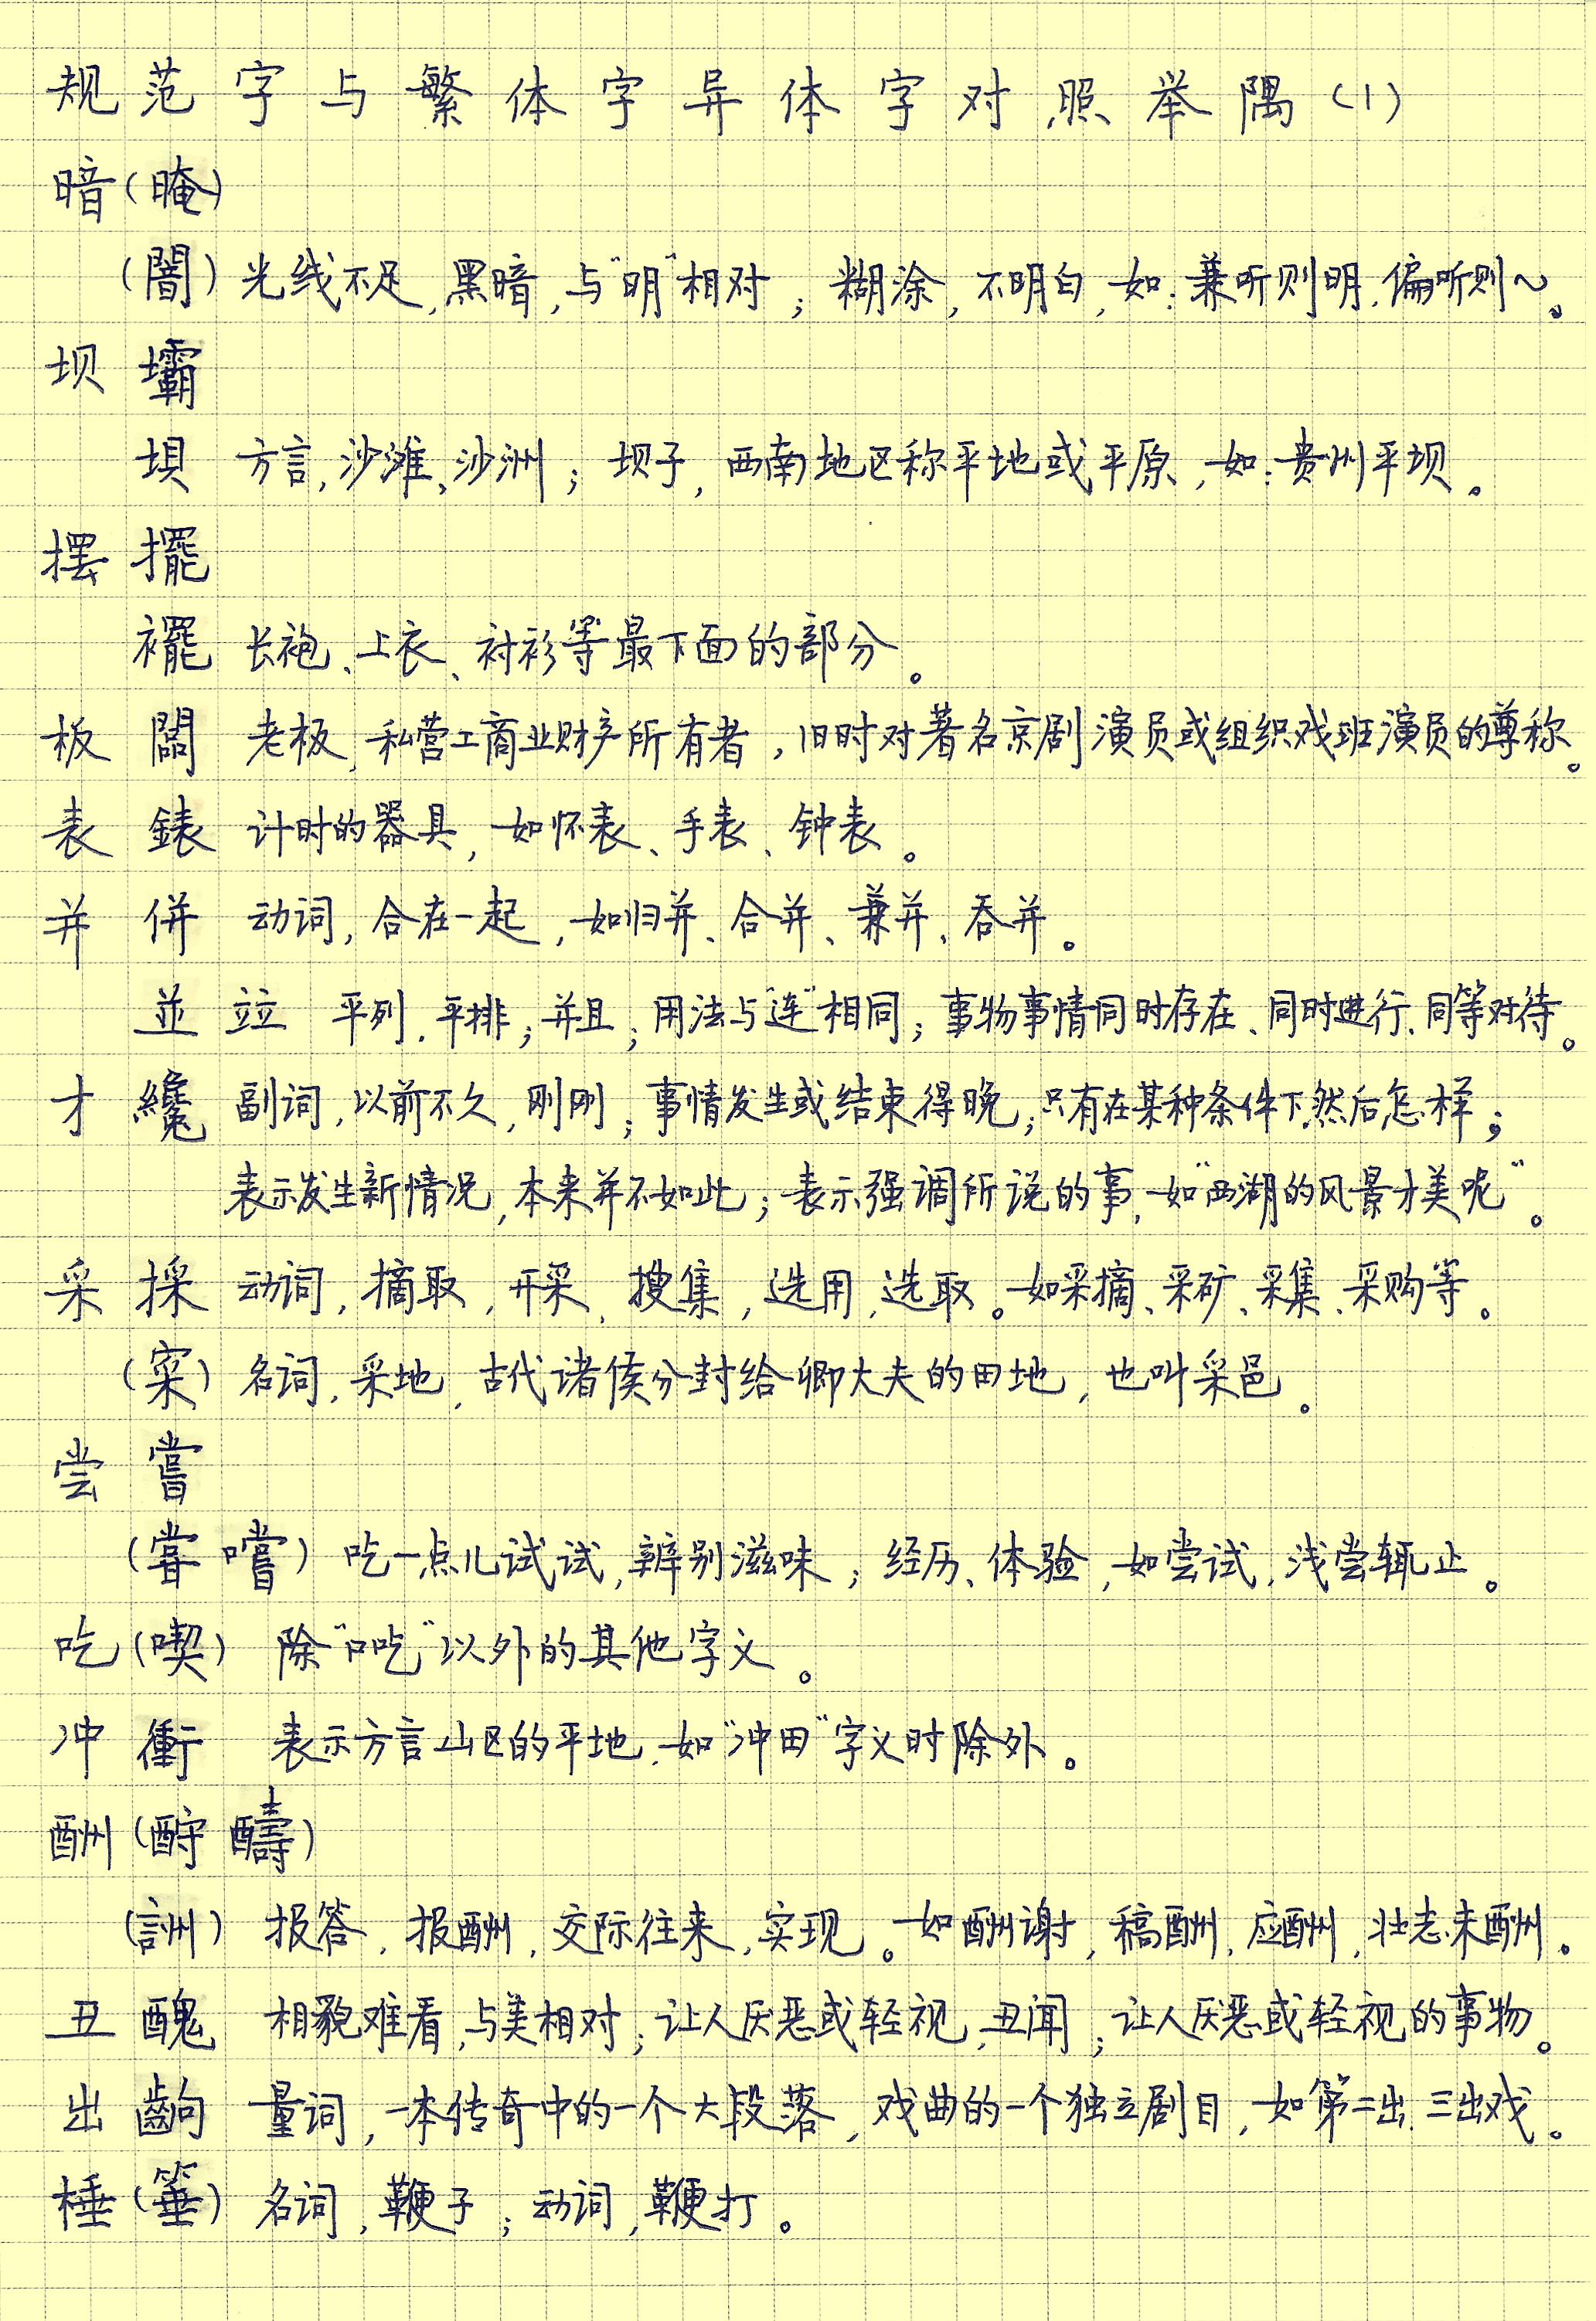 规范字与繁体字异体字对照举隅(1)
暗(晻)
(闇)光线不足,黑暗,与"明"相对;糊涂,不明白,如:兼听则明,偏听则~。
坝 壩
垻 方言,沙滩,沙洲;坝子,西南地区称平地或平原,如:贵州平坝。
摆 擺
襬 长袍、上衣、衬衫等最下面的部分。
板 闆 老板,私营工商业财产所有者,旧时对著名京剧演员或组织戏班演员的尊称。
表 錶 计时的器具,如怀表、手表、钟表。
并 併 动词,合在一起,如归并、合并、兼并、吞并。
並 竝 平列,平排;并且;用法与"连"相同;事物事情同时存在、同时进行、同等对待。
才 纔 副词,以前不久,刚刚;事情发生或结束得晚;只有在某种条件下,然后怎样;
表示发生新情况,本来并不如此;表示强调所说的事,如"西湖的风景才美呢"。
采 採 动词,摘取,开采,搜集,选用,选取。如采摘、采矿、采集、采购等。
(寀)名词,采地,古代诸侯分封给卿大夫的田地,也叫采邑。
尝 嘗
(甞 嚐)吃一点儿试试,辨别滋味;经历、体验,如尝试,浅尝辄止。
吃(喫) 除"口吃"以外的其他字义。
冲 衝 表示方言山区的平地,如"冲田"字义时除外。
酬(酧 醻)
(詶) 报答,报酬,交际往来,实现。如酬谢,稿酬,应酬,壮志未酬。
丑 醜 相貌难看,与美相对;让人厌恶或轻视,丑闻;让人厌恶或轻视的事物。
出 齣 量词,一本传奇中的一个大段落,戏曲的一个独立剧目,如第二出,三出戏。
棰(箠) 名词,鞭子;动词,鞭打。